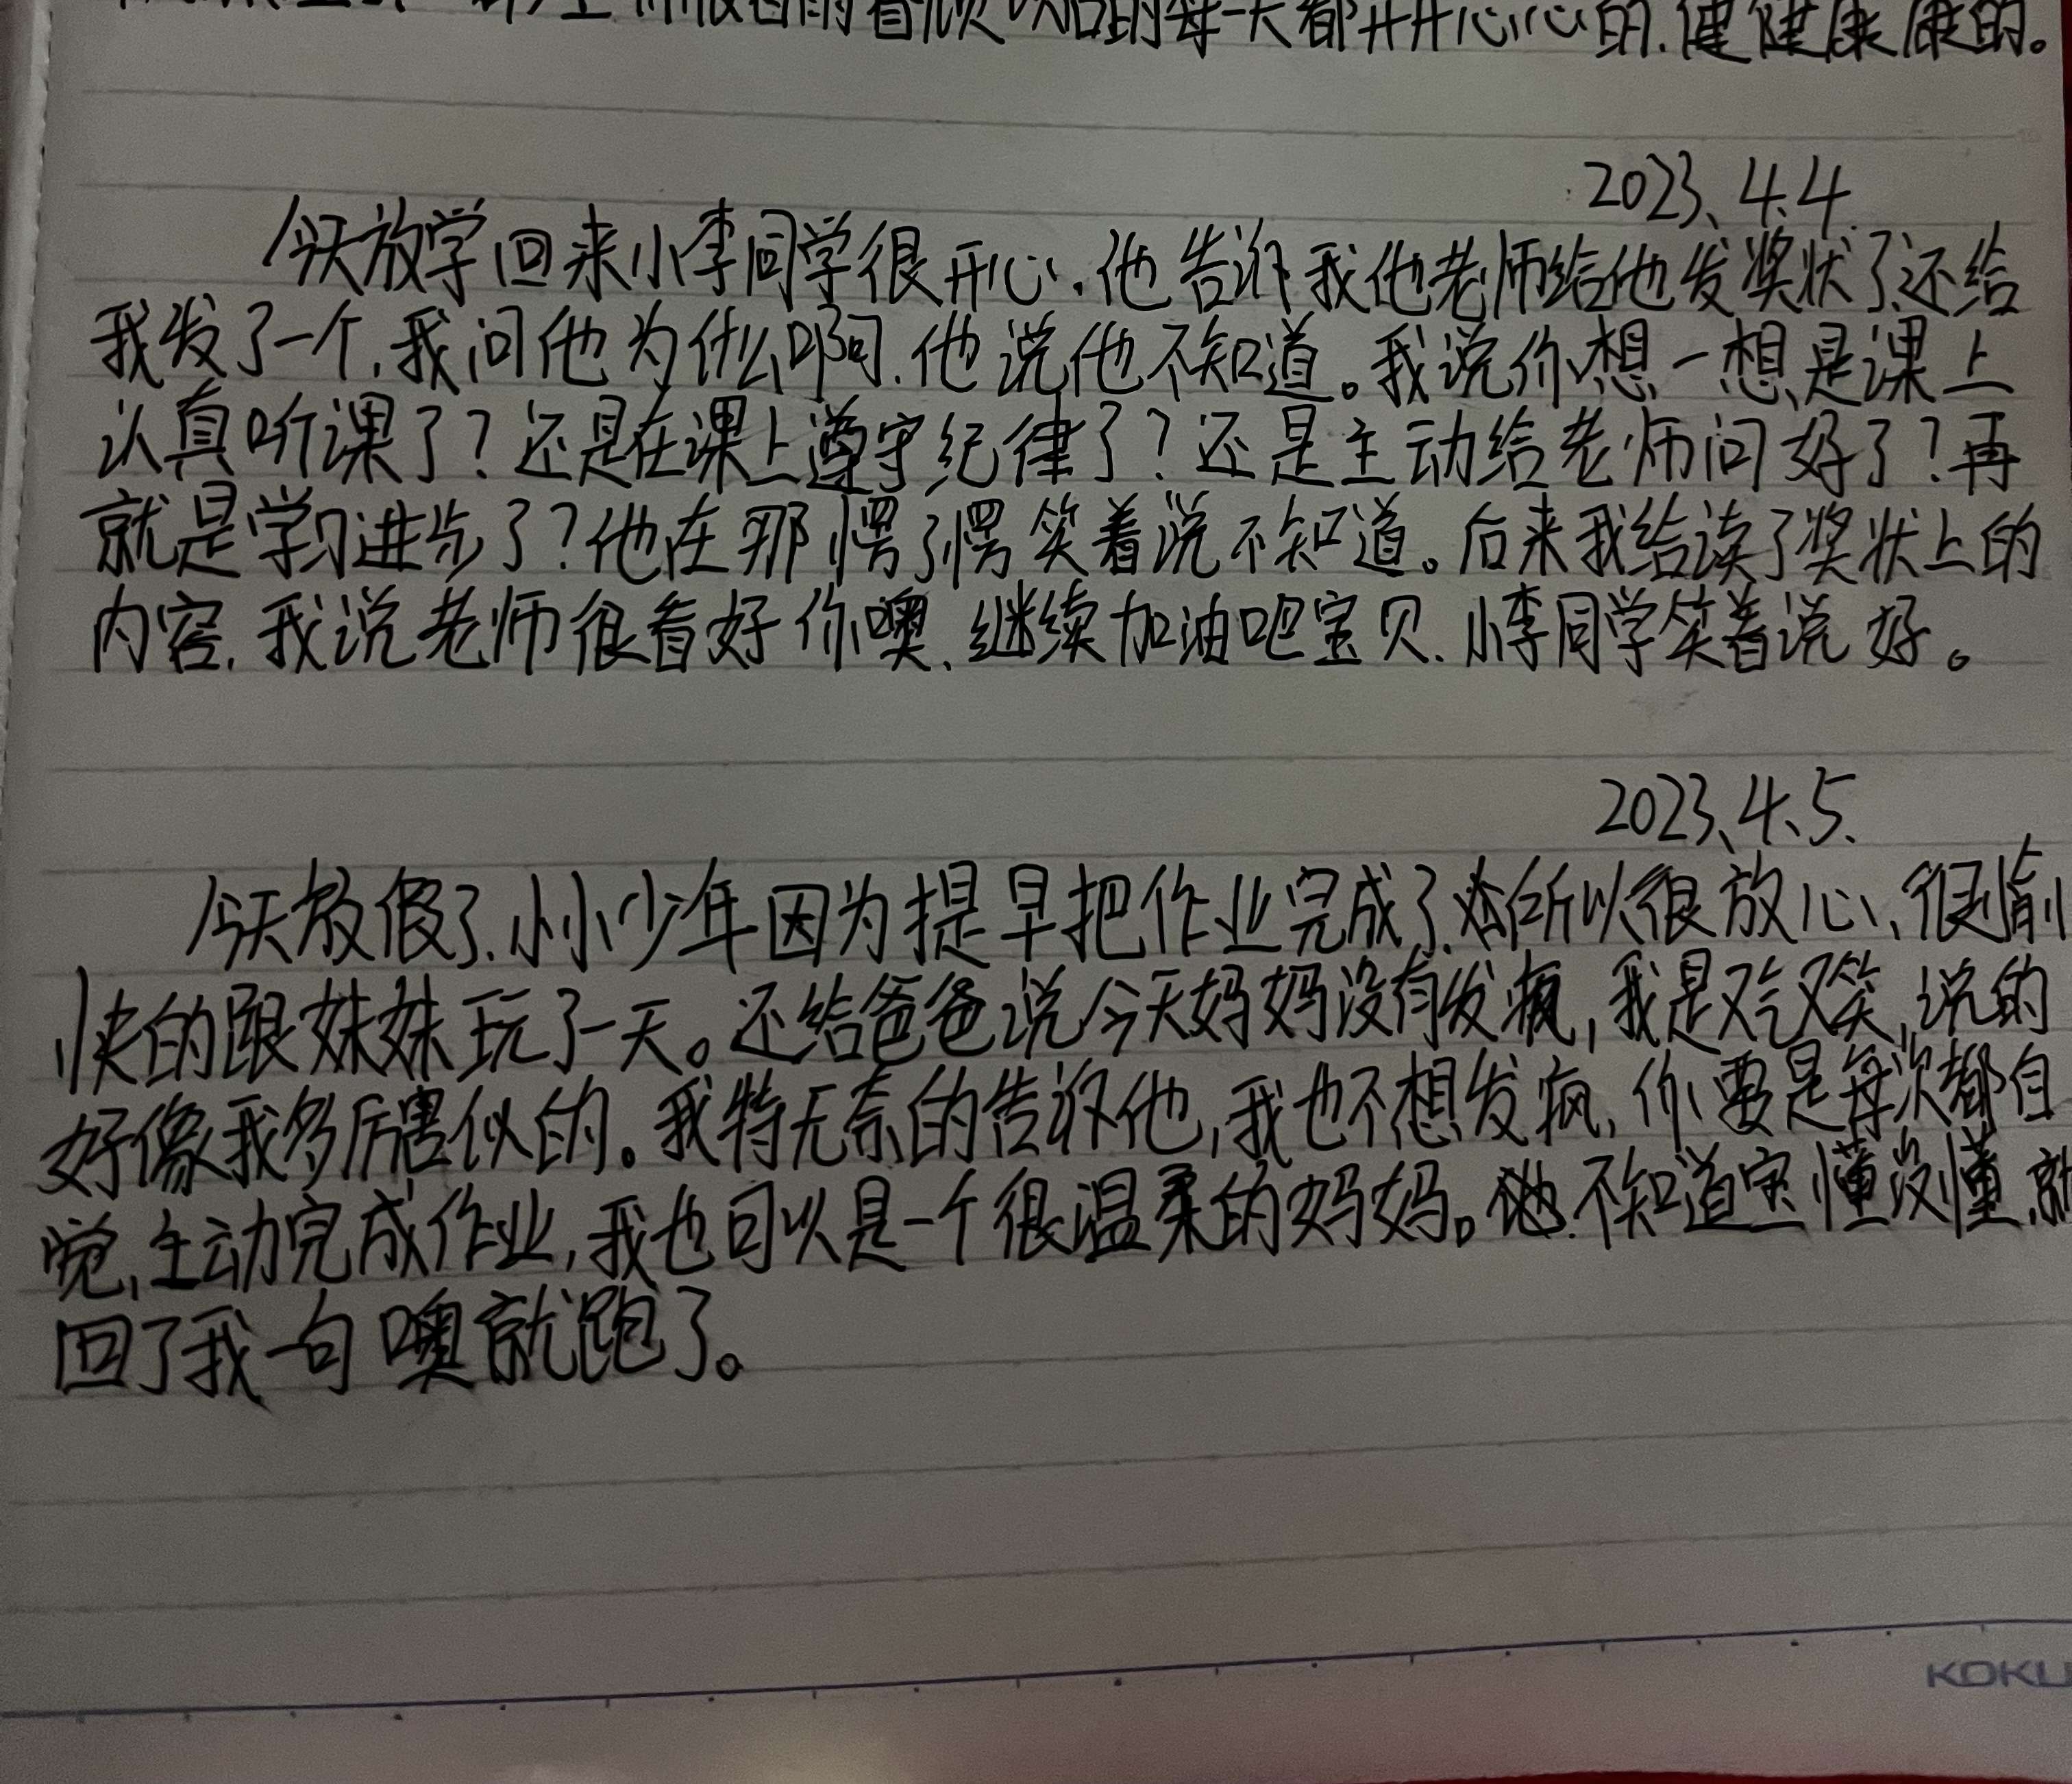 以后的每一天都开开心心的.健健康康的。
2023、4.4.
今天放学回来小李同学很开心.他告诉我他老师给他发奖状了、还给
我发了一个.我问他为什么啊.他说他不知道。我说你想一想是课上
认真听课了?还是在课上遵守纪律了?还是主动给老师问好了?再
就是学习进步了?他在那愣了愣笑着说不知道。后来我给读了奖状上的
内容.我说老师很看好你噢、继续加油吧宝贝.小李同学笑着说好。
2023、4、5、
今天放假了.小小少年因为提早把作业完成了.所以很放心、很愉
快的跟妹妹玩了一天。还给爸爸说今天妈妈没有发疯,我是又气又笑,说的
好像我多厉害似的。我特无奈的告诉他,我也不想发疯,你要是每次都自
觉,主动完成作业,我也可以是一个很温柔的妈妈。不知道宝懂没懂.就
回了我一句噢就跑了。
KOKU